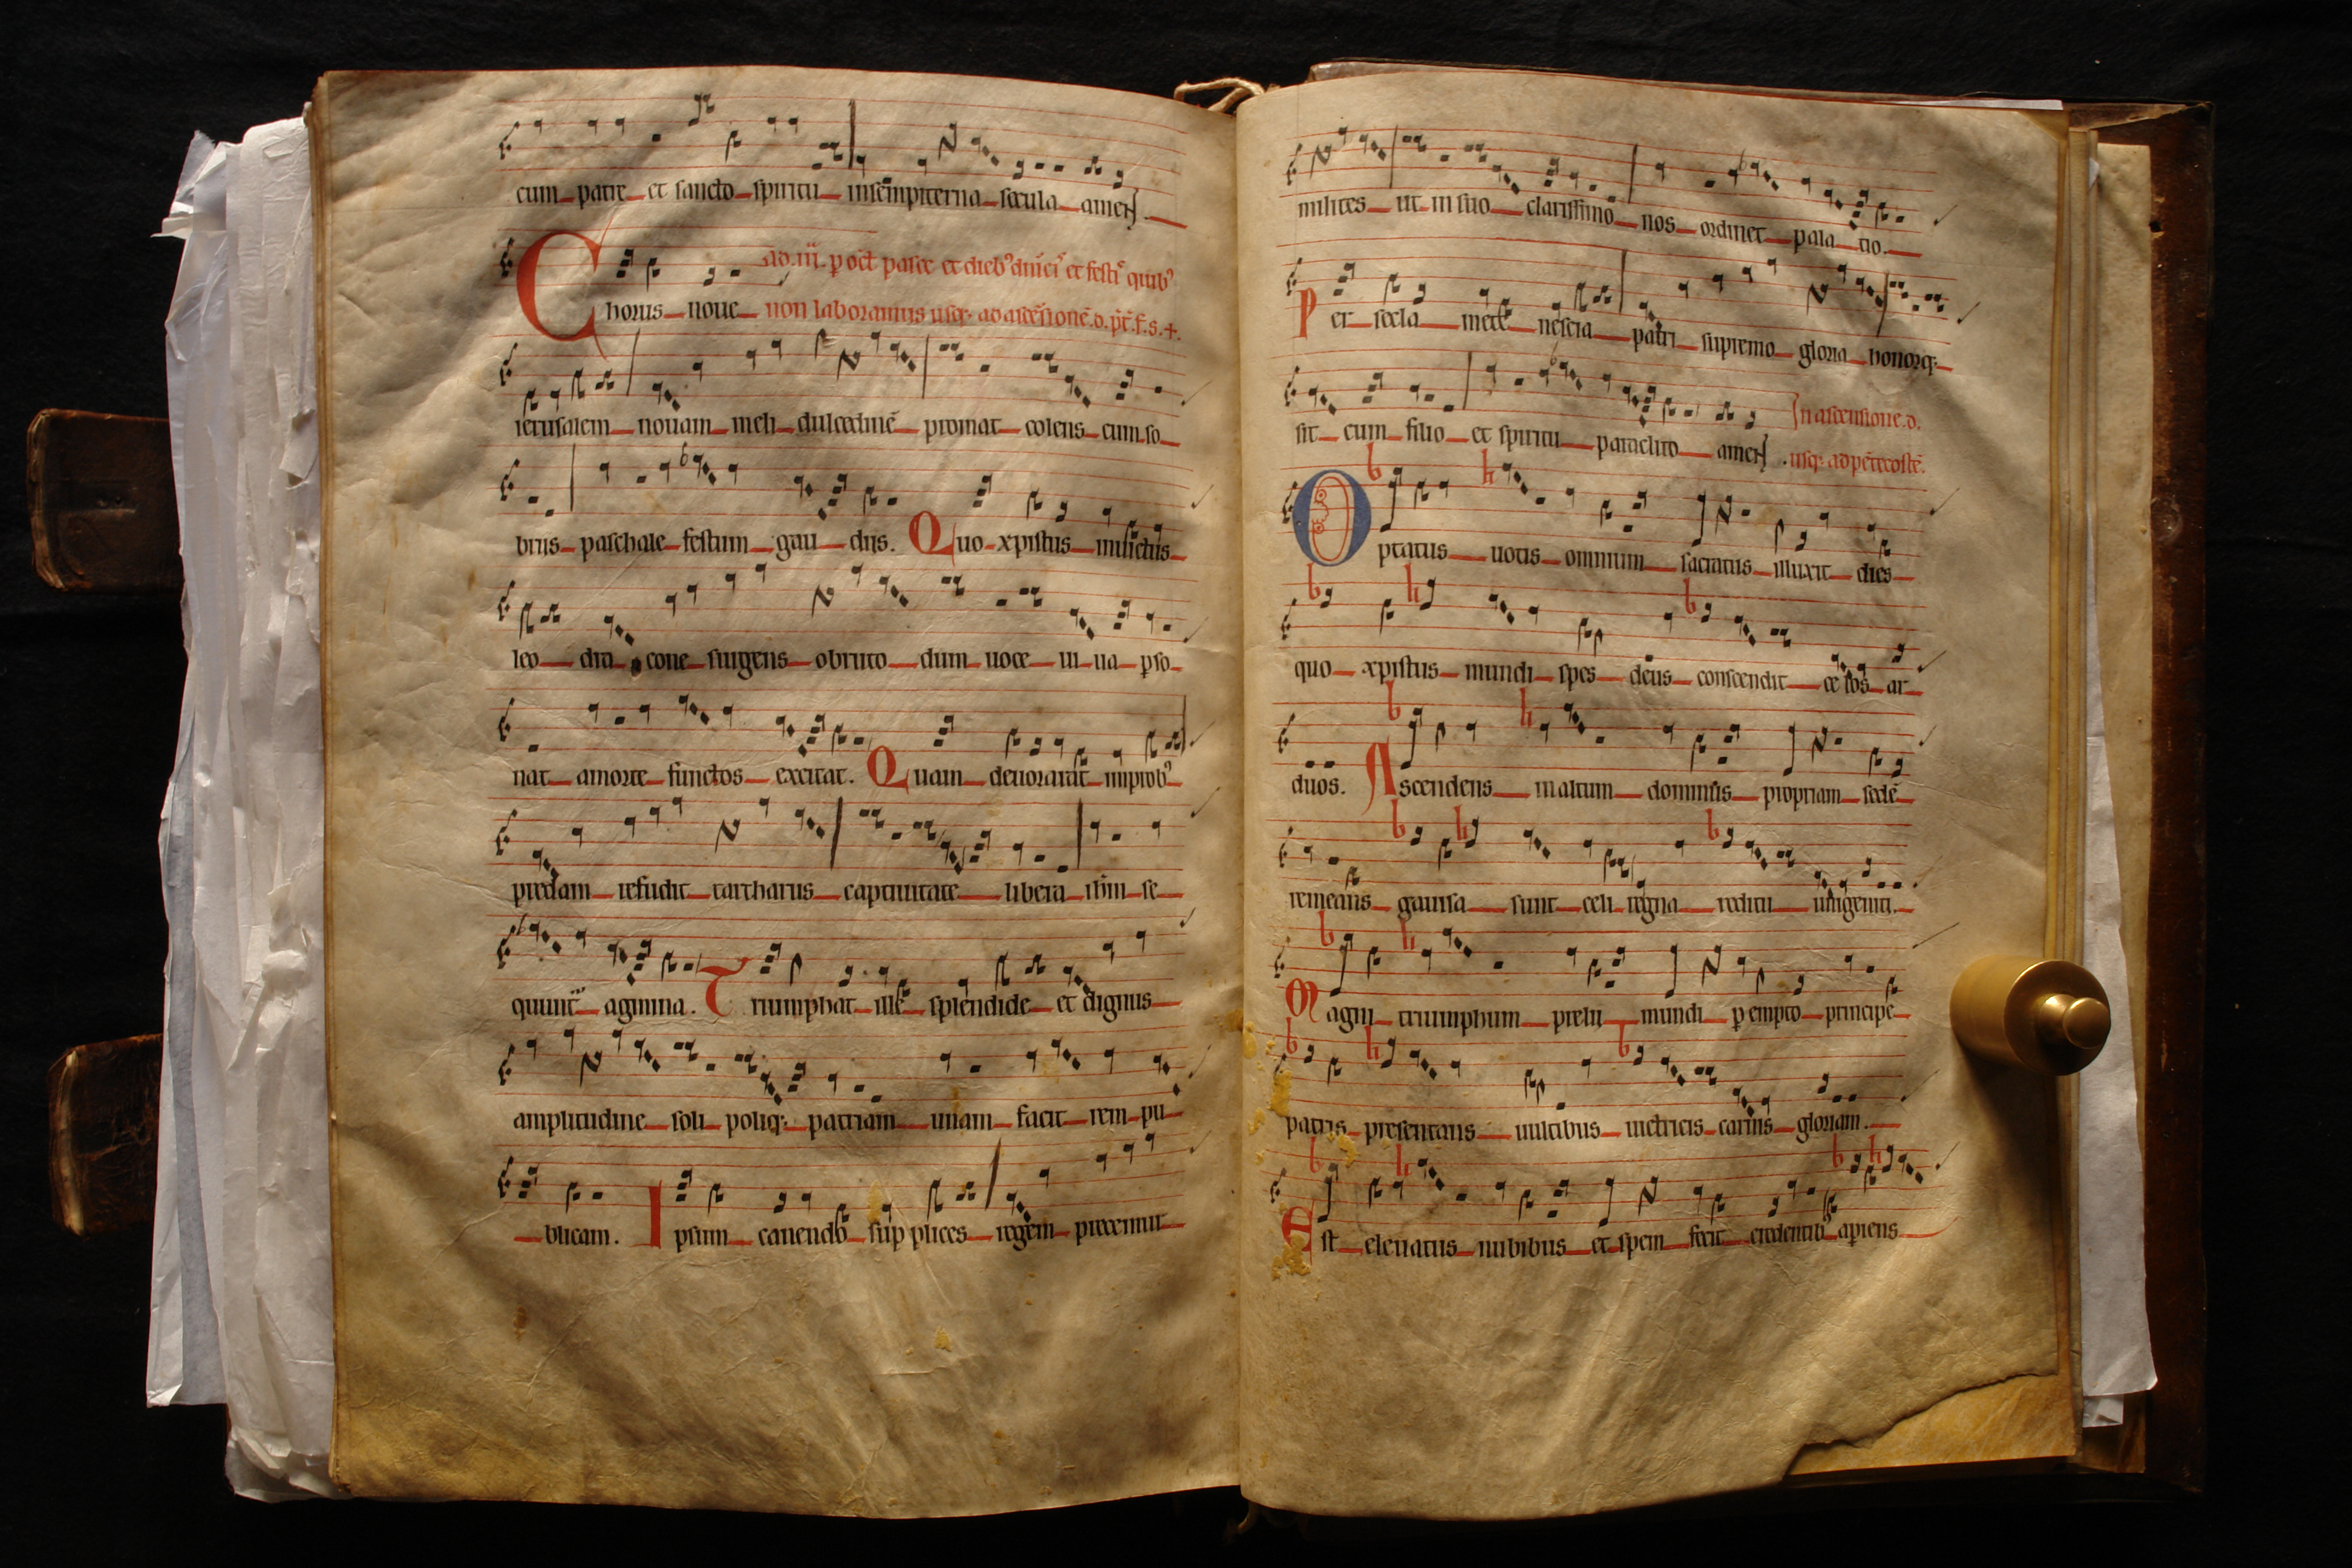 cum patre et sancto spiritu insempiterna secula amen
ad .iii. p oct pasce et dieb' dnīci' et festi' quib'
Chorus noue non laboramus usq; ad ascēsionē.
ierusalem nouam meli dulcedinē promat colens cum so
briis paschale festum gau diis. Quo xpistus inuictus
leo dra cone surgens obruto dum uoce ui ua pso
nat amorte functos excitat. Quam deuorarat improb'
predam refudit tartharus captiuitate libera ihm se
quunt' agmina. Triumphat ille splendide et dignus
amplitudine soli poliq; patriam unam facit rem pu
blicam. Ipsum canendo sup plices regem precemur
milites ut in suo clarissimo nos ordinet pala tio.
Per secla mete nescia patri supremo gloria honorq;
In ascensione.d.
sit cum filio et spiritu paraclito amen. usq; ad pētecostē.
Optatus uotis omnium sacratus illuxit dies
quo xpistus mundi spes deus conscendit ce los ar
duos. Ascendens in altum dominus propriam sedē
remeans gauisa sunt celi regna reditu unigeniti.
Magni triumphum prelii mundi pempto principe
patris presentans uultibus uictricis carnis gloriam.
Est eleuatus nubibus et spem fecit credentib' apiens